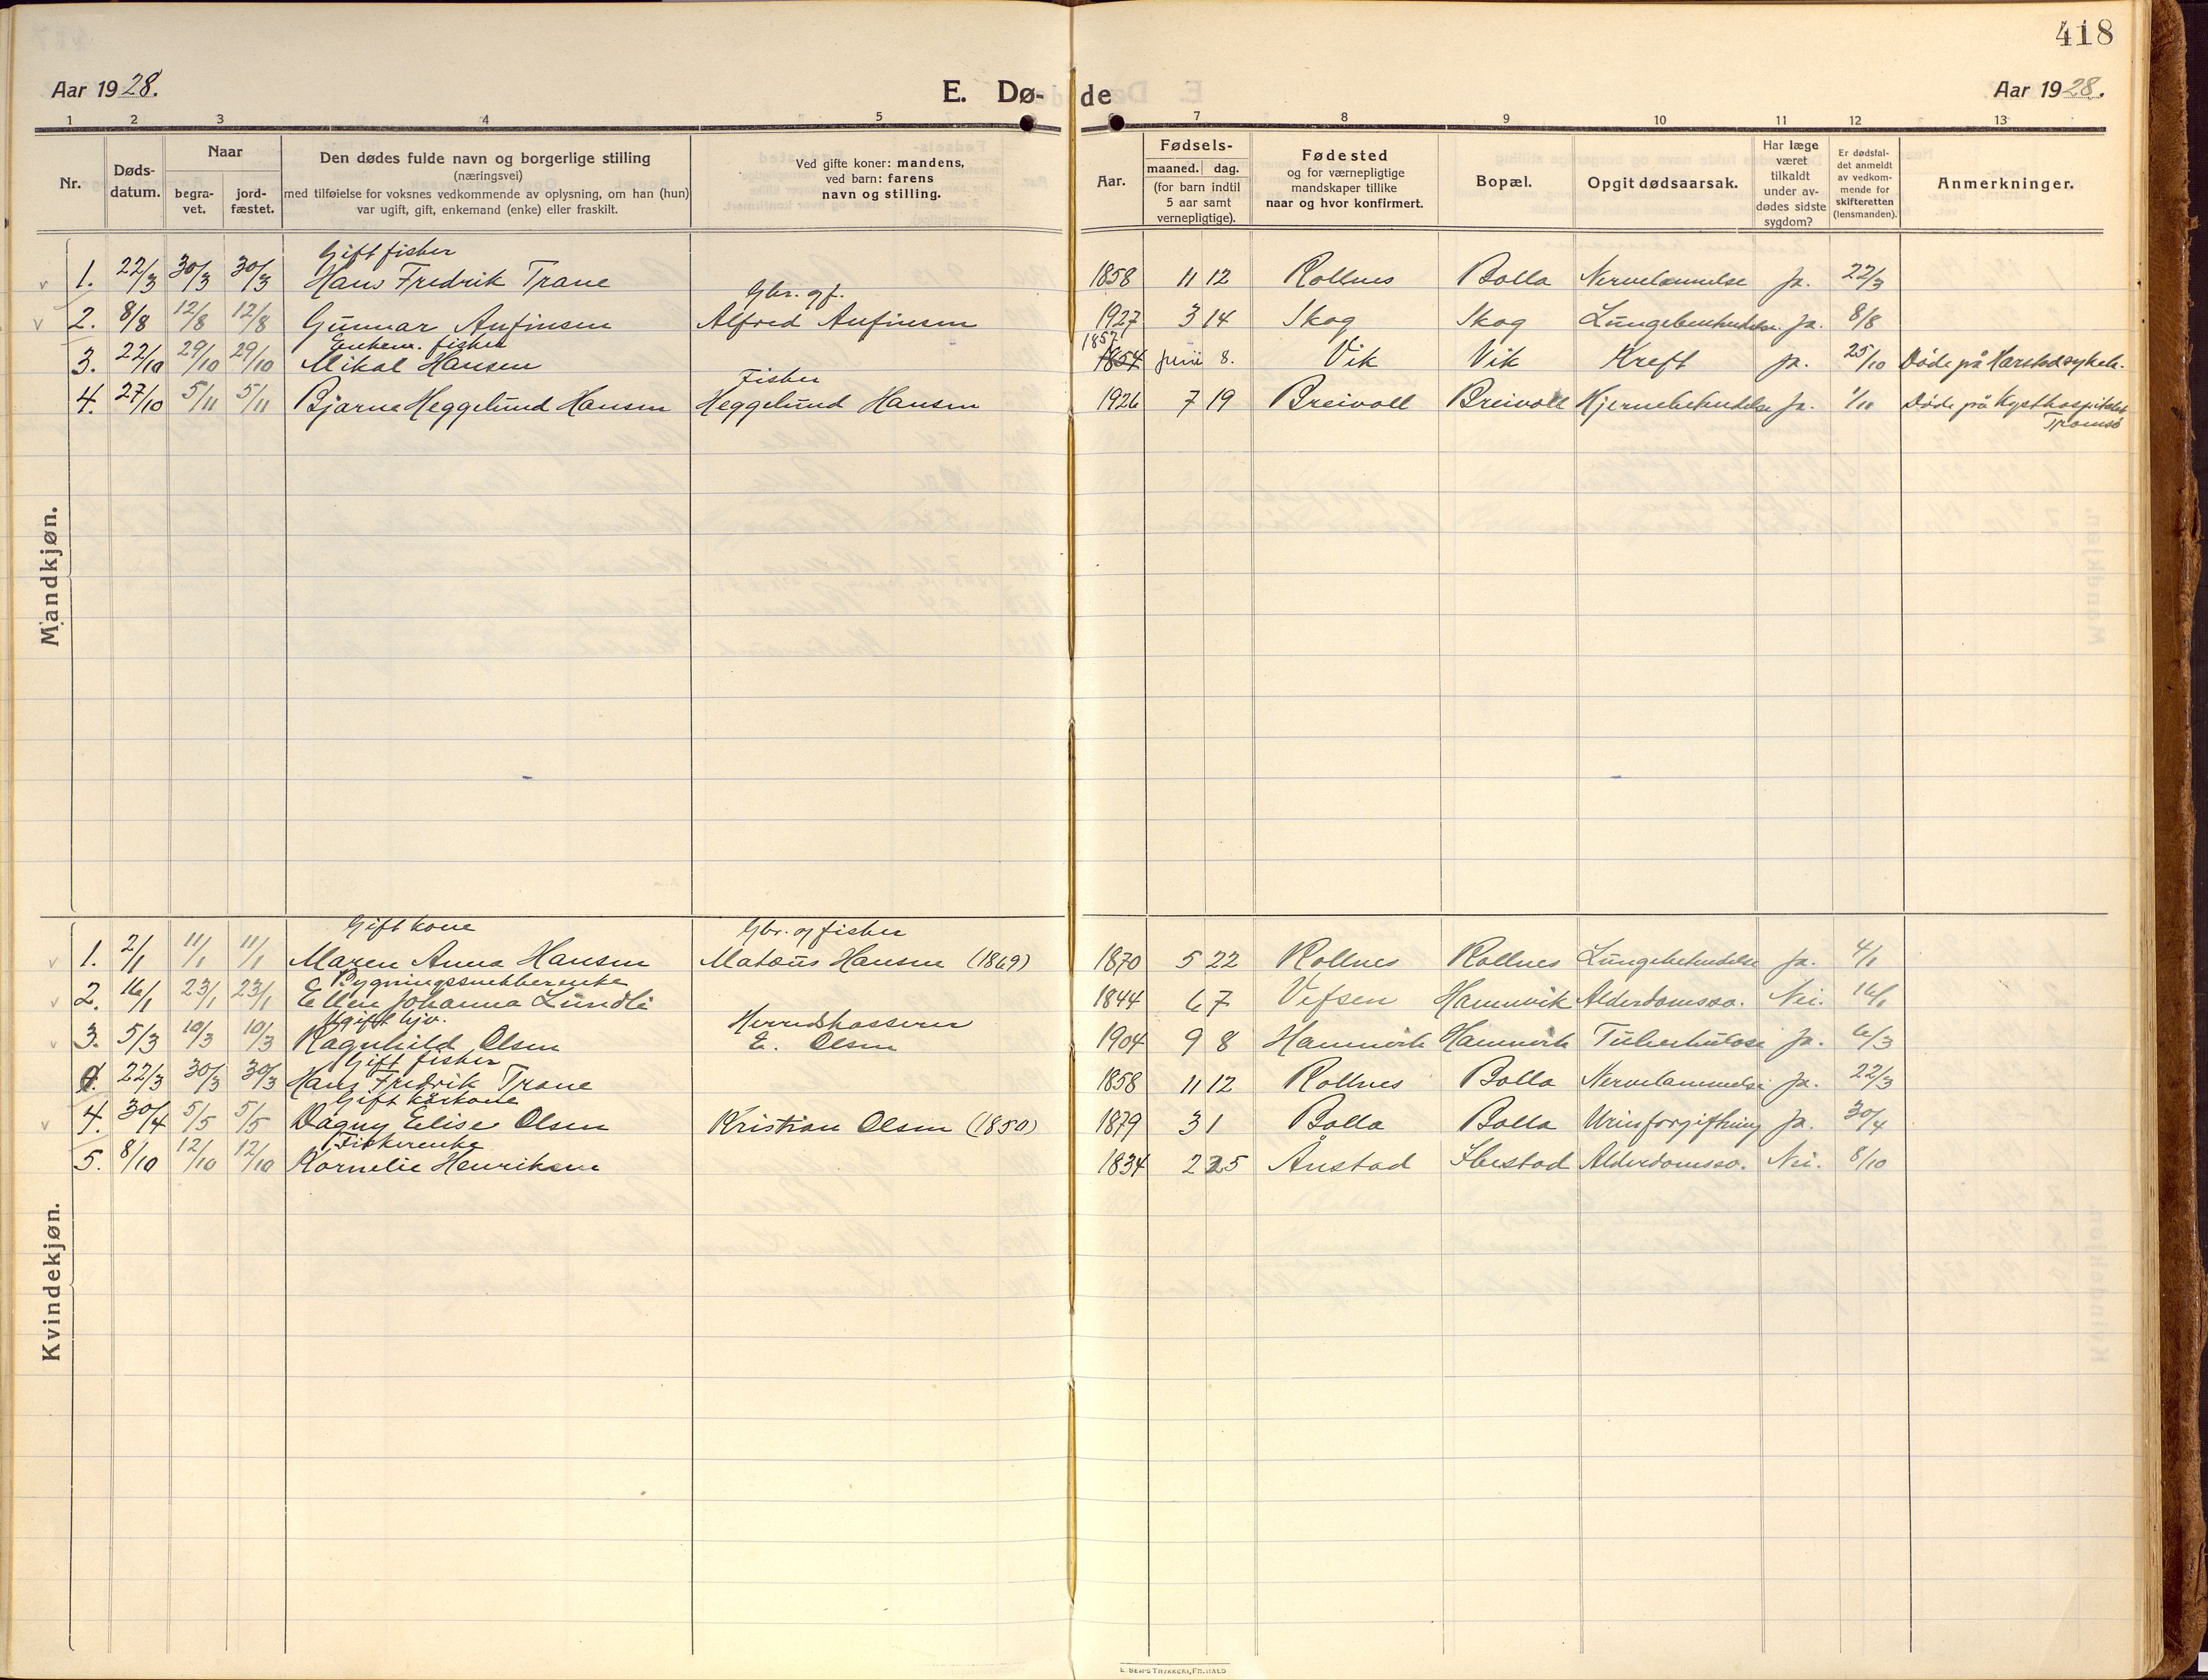 418
Aar 1928.
E. Dø-
de
Aar 1928.
1 2 3 4 5 6 7 8 9 10 11 12 13
Nr.
Døds-
datum.
Naar
begra-
vet.
jord-
fæstet.
Den dødes fulde navn og borgerlige stilling
(næringsvei)
med tilføielse for voksnes vedkommende av oplysning, om han (hun)
var ugift, gift, enkemand (enke) eller fraskilt.
Ved gifte koner: mandens,
ved barn: farens
navn og stilling.
Aar.
Fødsels-
maaned. dag.
(for barn indtil
5 aar samt
vernepligtige).
Fødested
og for værnepligtige
mandskaper tillike
naar og hvor konfirmert.
Bopæl.
Opgit dødsaarsak.
Har læge
været
tilkaldt
under av-
dødes sidste
sygdom?
Er dødsfal-
det anmeldt
av vedkom-
mende for
skifteretten
(lensmanden).
Anmerkninger.
Mandkjøn.
Gift fisker
1. 22/3 30/3 30/3 Hans Fredrik Trane 1858 11 12 Rollnes Bolla Nervelammelse Ja. 22/3
Gbr. og f.
2. 8/8 12/8 12/8 Gunnar Anfinsen Alfred Anfinsen 1927 3 14 Skog Skog Lungebetendelse Ja. 8/8
Enkem. fisker 1857
3. 22/10 29/10 29/10 Mikal Hansen 1854 juni 8. Vik Vik Kreft Ja. 25/10 Døde på Harstad sykeh.
Fisker
4. 27/10 5/11 5/11 Bjarne Heggelund Hansen Heggelund Hansen 1926 7 19 Breivoll Breivoll Hjernebetendelse Ja. 1/11 Døde på Kysthospitalet
Tromsø
Kvindekjøn.
Gift kone Gbr. og fisker
1. 2/1 11/1 11/1 Maren Anna Hansen Mateus Hansen (1869) 1870 5 22 Rollnes Rollnes Lungebetendelse Ja. 4/1
Bygningssnekkerenke
2. 16/1 23/1 23/1 Ellen Johanna Lundli 1844 6 7 Vefsen Hamnvik Alderdomssv. Nei. 16/1
Ugift hjv. Herredskasserer
3. 5/3 10/3 10/3 Ragnhild Olsen E. Olsen 1904 9 8 Hamnvik Hamnvik Tuberkulose Ja. 6/3
Gift fisker
4. 22/3 30/3 30/3 Hans Fredrik Trane 1858 11 12 Rollnes Bolla Nervelammelse Ja. 22/3
Gift kårkone
4. 30/4 5/5 5/5 Dagny Elise Olsen Kristian Olsen (1850) 1879 3 1 Bolla Bolla Urinforgiftning Ja. 30/4
Fiskerenke
5. 8/10 12/10 12/10 Kornelie Henriksen 1834 2 25 Ånstad Ibestad Alderdomssv. Nei. 8/10